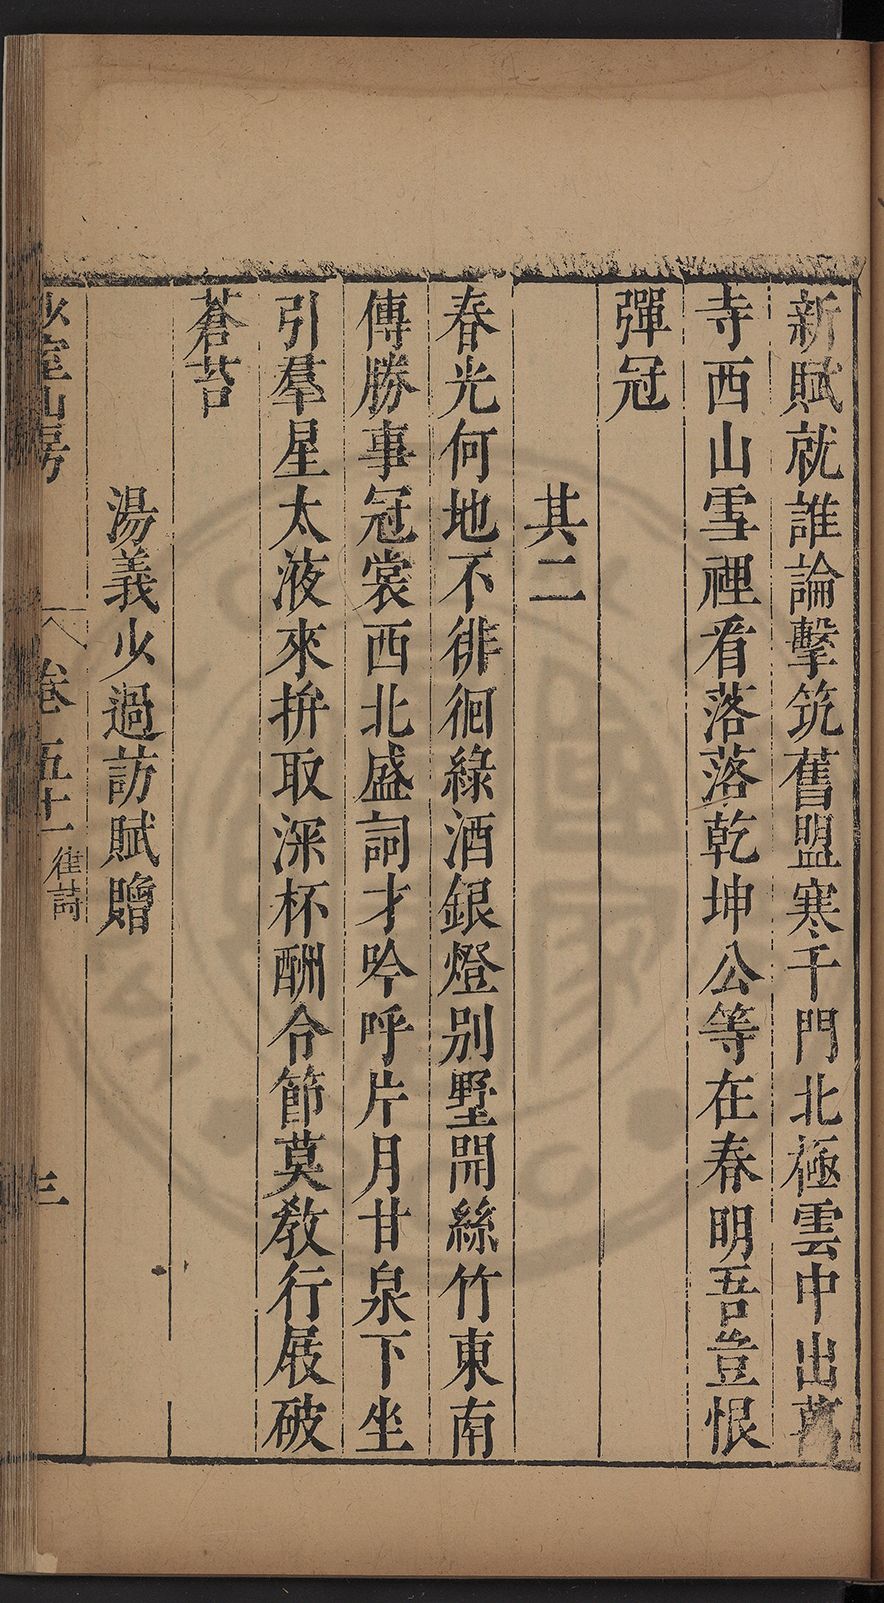 新賦就誰論擊筑舊盟寒千門北極雲中出萬
寺西山雪裡看落落乾坤公等在春明吾豈恨
彈冠
其二
春光何地不徘徊綠酒銀燈别墅開絲竹東南
傳勝事冠裳西北盛詞才吟呼片月甘泉下坐
引羣星太液來拚取深杯酬令節莫教行屐破
蒼苔
湯義少過訪賦贈
少室山房 卷五十一 律詩 三